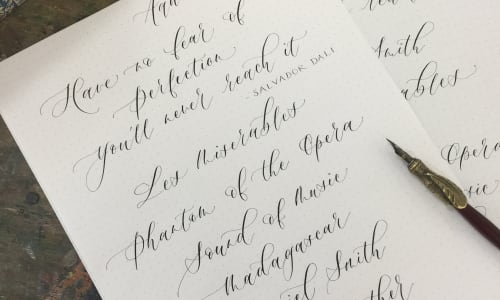 Have no fear of
perfection
you'll never reach it
- SALVADOR DALI
Les Miserables
Phantom of the Opera
Sound of Music
Madagascar
Smith
Smith
ables
Opera